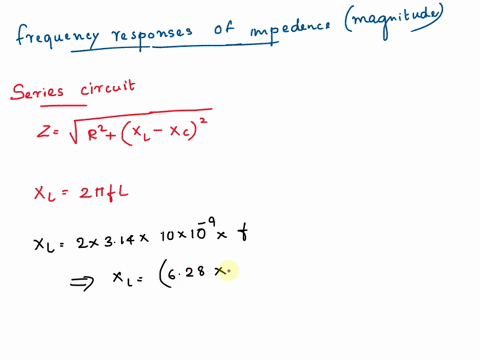 frequency responses of impedence (magnitude)
Series circuit
Z= √R²+(X_L - X_C)²
X_L = 2πfL
X_L = 2×3.14× 10×10⁻⁹ × f
⇒ X_L = (6.28 ×